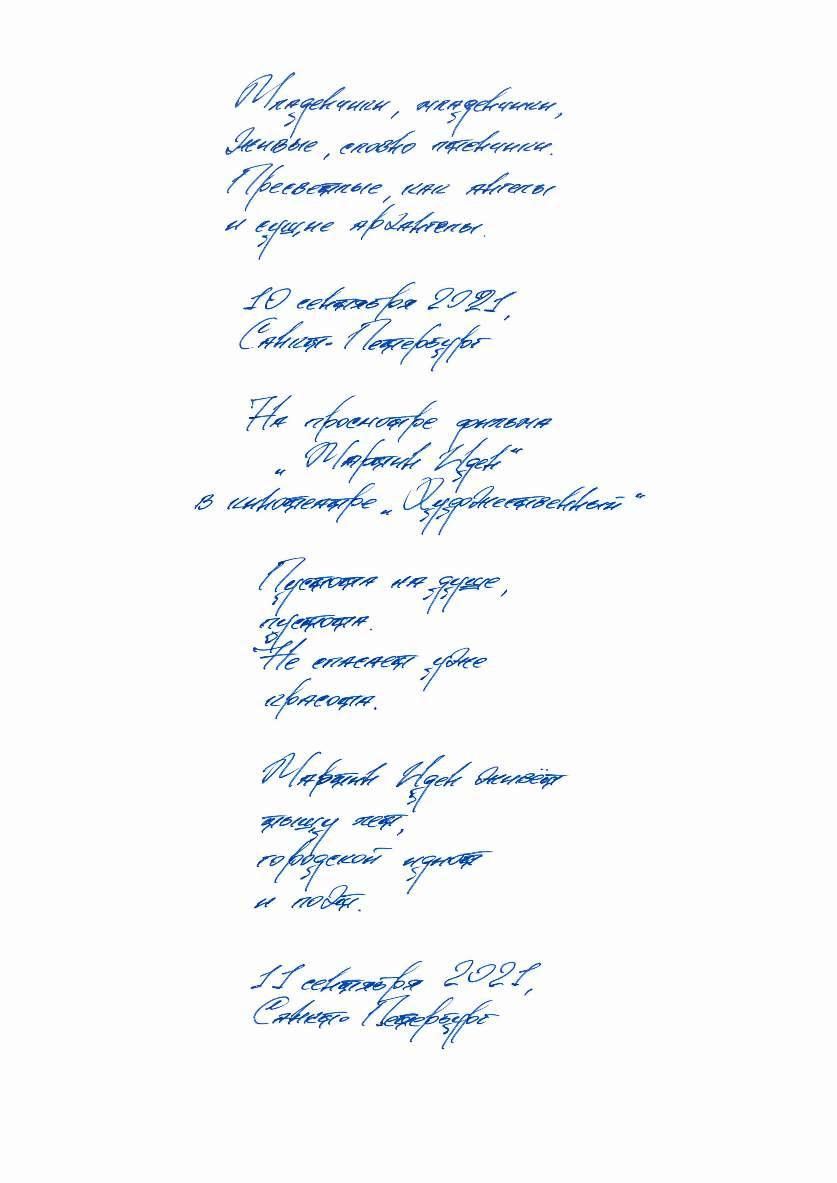 Младенчики, младенчики,
Живые, словно птенчики.
Пресветлые, как ангелы
и сущие архангелы.
10 сентября 2021,
Санкт-Петербург
На просмотре фильма
„Мартин Иден“
в кинотеатре „Художественный“
Пустота на душе,
пустота.
Не спасает уже
красота.
Мартин Иден живёт
тыщу лет,
городской идиот
и поэт.
11 сентября 2021,
Санкт-Петербург